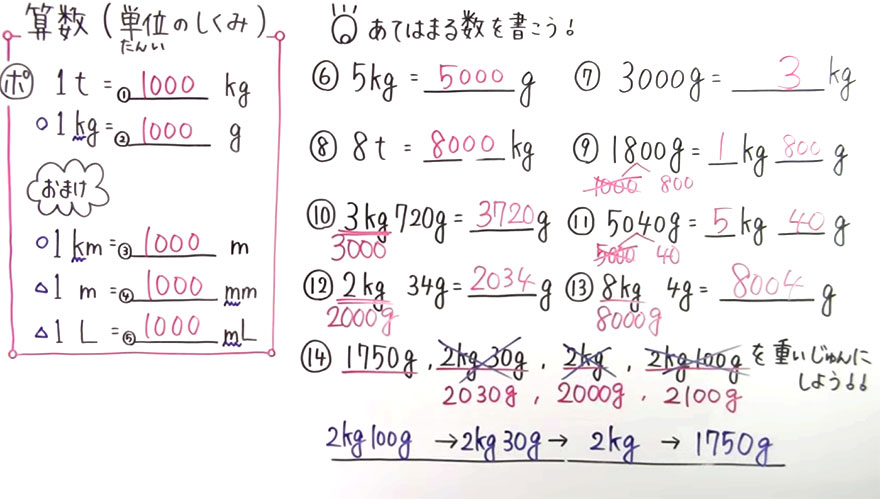 算数(単位のしくみ)
たんい
ポ 1t = ① 1000 kg
○1kg = ② 1000 g
おまけ
○1km = ③ 1000 m
△1 m = ④ 1000 mm
△1 L = ⑤ 1000 mL
あてはまる数を書こう!
⑥ 5kg = 5000 g
⑦ 3000g = 3 kg
⑧ 8t = 8000 kg
⑨ 1800g = 1 kg 800 g
1000 800
⑩ 3kg 720g = 3720g
3000
⑪ 5040g = 5 kg 40 g
5000 40
⑫ 2kg 34g = 2034 g
2000g
⑬ 8kg 4g = 8004 g
8000g
⑭ 1750g , 2kg 30g , 2kg , 2kg 100g を重いじゅんに
しよう!!
2030g , 2000g , 2100g
2kg100g → 2kg 30g → 2kg → 1750g